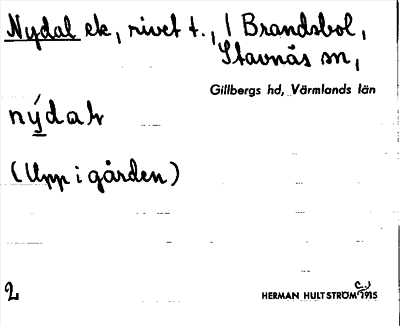 Nydal ek, rivet t., 1 Brandsbol,
Stavnäs sn,
Gillbergs hd, Värmlands län
nýdaɫ
(Upp i gården)
2
HERMAN HULTSTRÖM c.) 1915